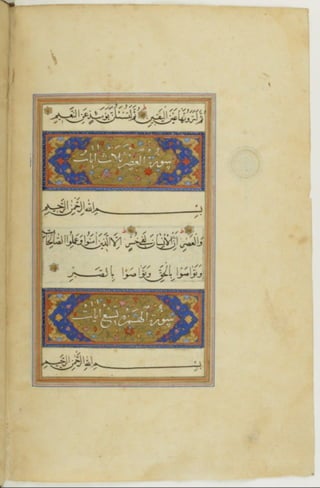 ثم لترونها عين اليقين ثم لتسئلن يومئذ عن النعيم
سورة العصر ثلاث ايات
بسم الله الرحمن الرحيم
والعصر ان الانسان لفي خسر الا الذين امنوا وعملوا الصالحات
وتواصوا بالحق وتواصوا بالصبر
سورة الهمزة تسع ايات
بسم الله الرحمن الرحيم